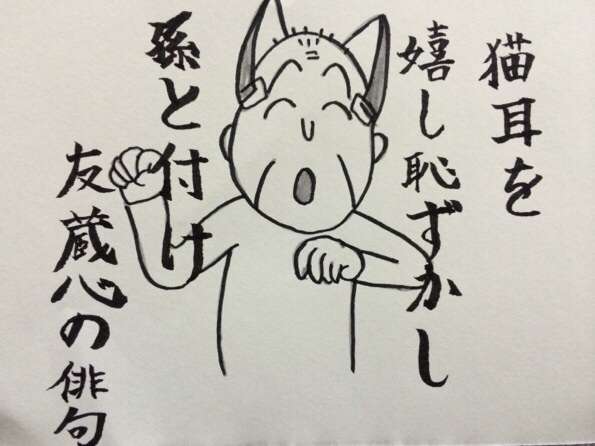 猫耳を
嬉し恥ずかし
孫と付け
友蔵心の俳句